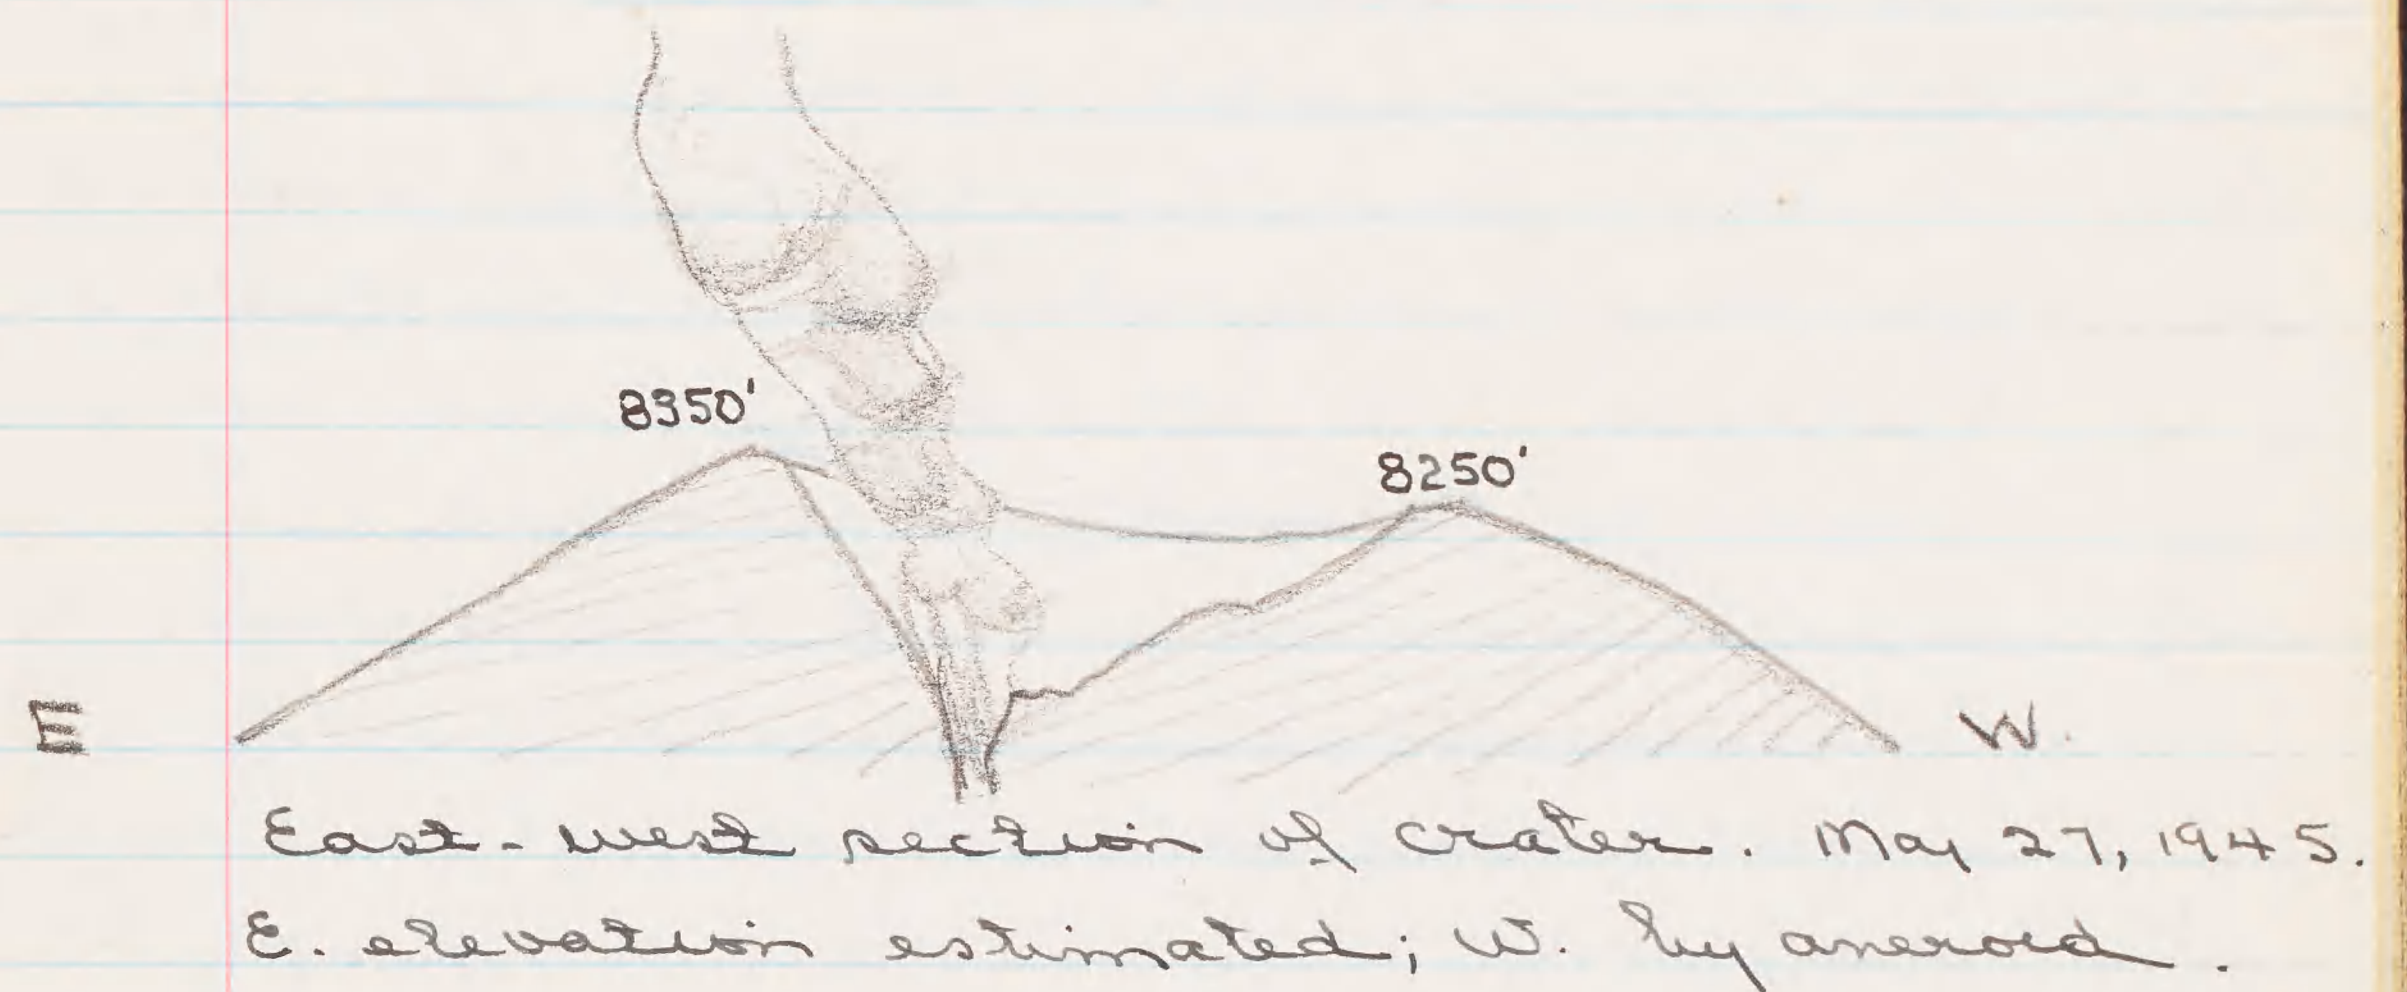 8350'
8250'
E W.
East-west section of crater. May 27, 1945.
E. elevation estimated; W. by aneroid.